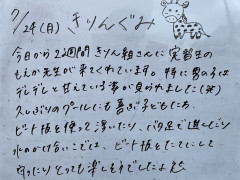 7/24(月) きりんぐみ
今日から2週間きりん組さんに実習生の
もえか先生が来てくれています。特に男の子は
デレデレと甘えている姿が見られました(笑)
久しぶりのプールにも喜ぶ子どもたち。
ビート板を使って浮いたり、バタ足で進んだり
水のかけ合いでは、ビート板をたてにして
守ったりととっても楽しそうでしたよ